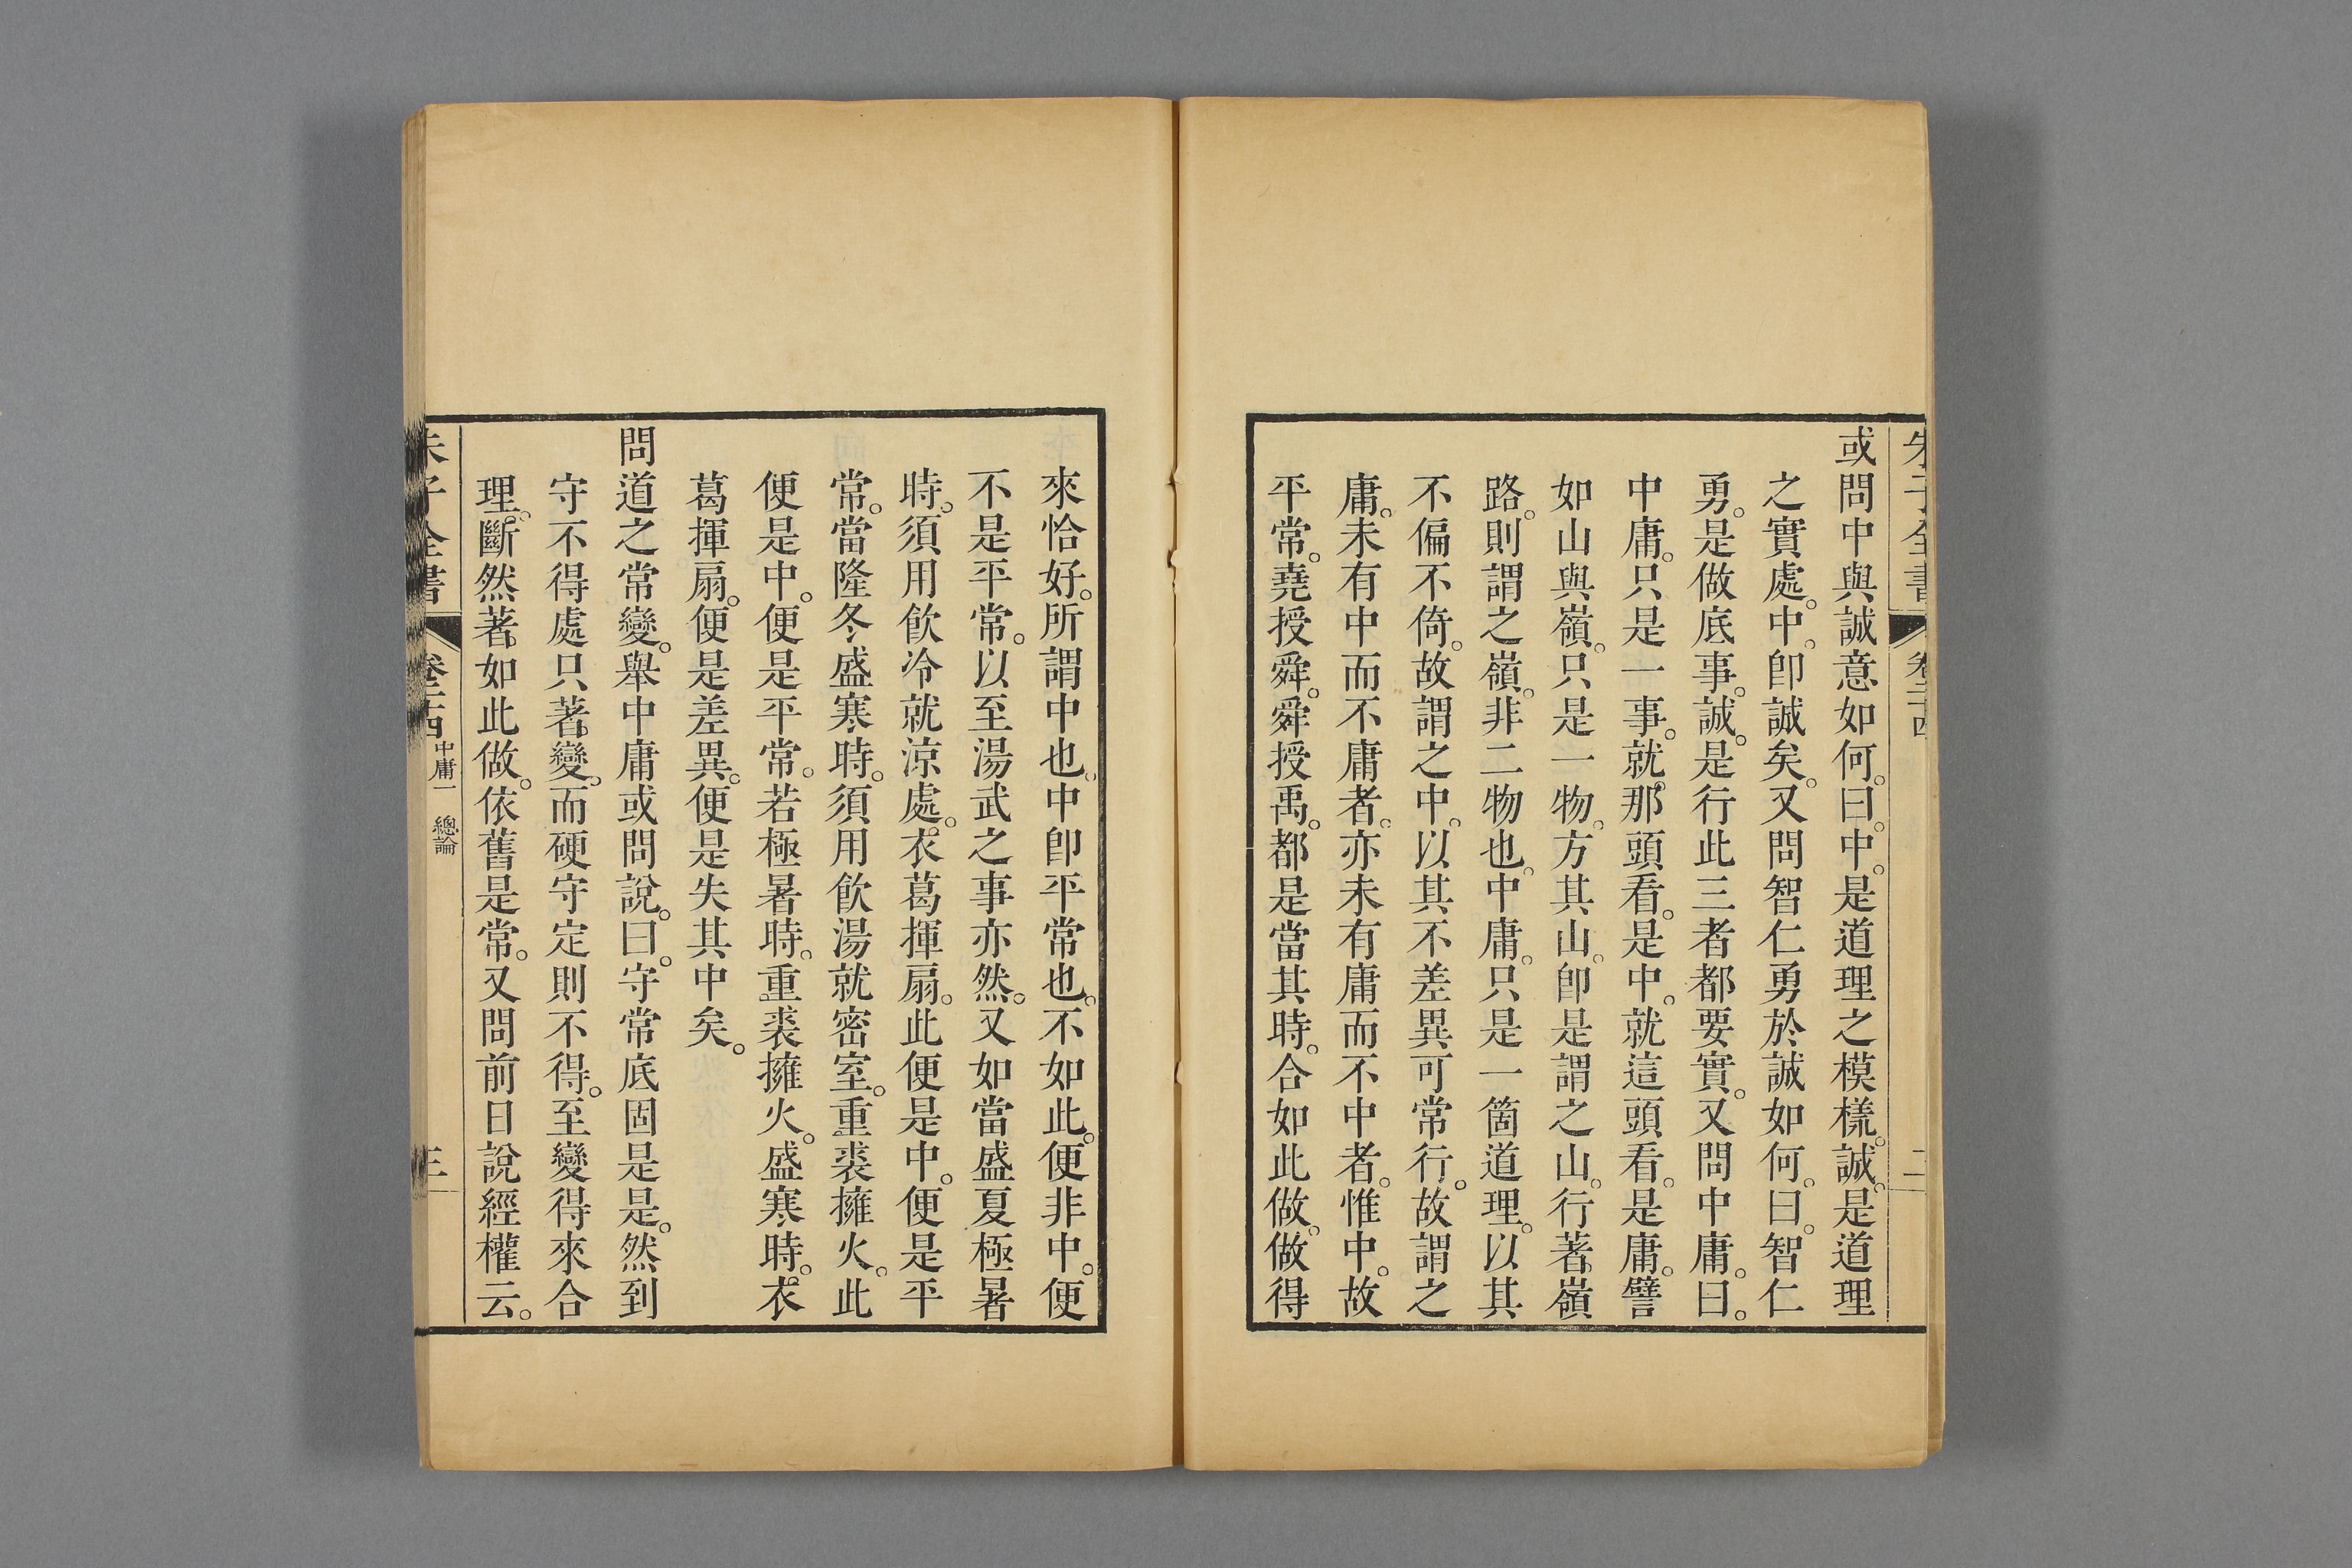 朱子全書 卷二十四 二
或問中與誠意如何。曰。中。是道理之模樣。誠。是道理
之實處。中。卽誠矣。又問智仁勇於誠如何。曰。智仁
勇。是做底事。誠。是行此三者都要實。又問中庸。曰。
中庸。只是一事。就那頭看。是中。就這頭看。是庸。譬
如山與嶺。只是一物。方其山。卽是謂之山。行著嶺
路。則謂之嶺。非二物也。中庸。只是一箇道理。以其
不偏不倚。故謂之中。以其不差異可常行。故謂之
庸。未有中而不庸者。亦未有庸而不中者。惟中。故
平常。堯授舜。舜授禹。都是當其時。合如此做。做得
來恰好。所謂中也。中卽平常也。不如此。便非中。便
不是平常。以至湯武之事亦然。又如當盛夏極暑
時。須用飮冷就涼處。衣葛揮扇。此便是中。便是平
常。當隆冬盛寒時。須用飮湯就密室。重裘擁火。此
便是中。便是平常。若極暑時。重裘擁火。盛寒時。衣
葛揮扇。便是差異。便是失其中矣。
問道之常變。舉中庸或問說。曰。守常底固是是。然到
守不得處只著變。而硬守定則不得。至變得來合
理。斷然著如此做。依舊是常。又問前日說經權云。
朱子全書 卷二十四 中庸一 總論 三